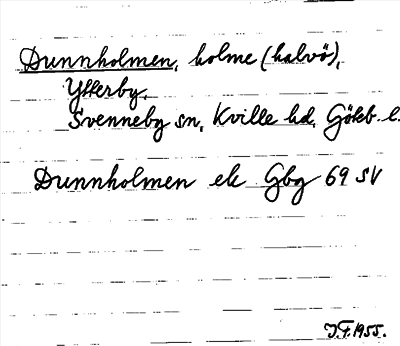 Dunnholmen, holme (halvö),
Ytterby,
Svenneby sn, Kville hd, Göteb. l.
Dunnholmen ek Gbg 69 SV
J.F. 1955.